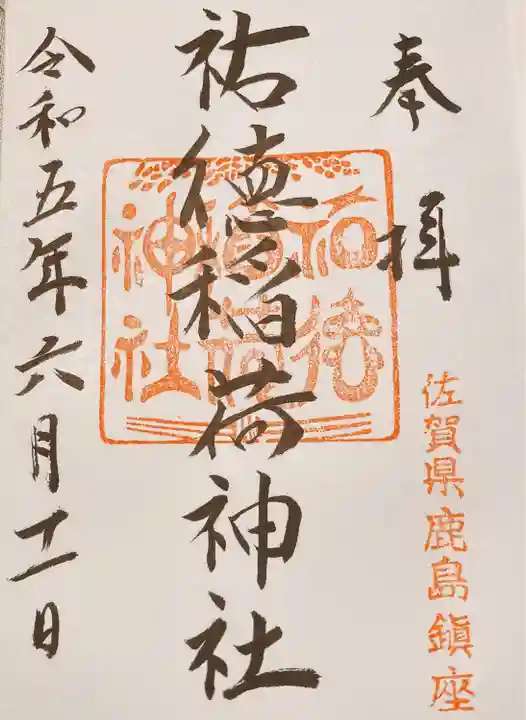 奉拝
佐賀県鹿島鎮座
祐徳稲荷神社
祐徳稲荷神社
令和五年六月十一日